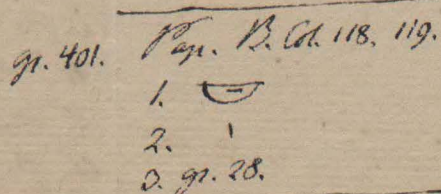 gr. 401. Pap. B. Col. 118. 119.
1.
2.
3. gr. 28.